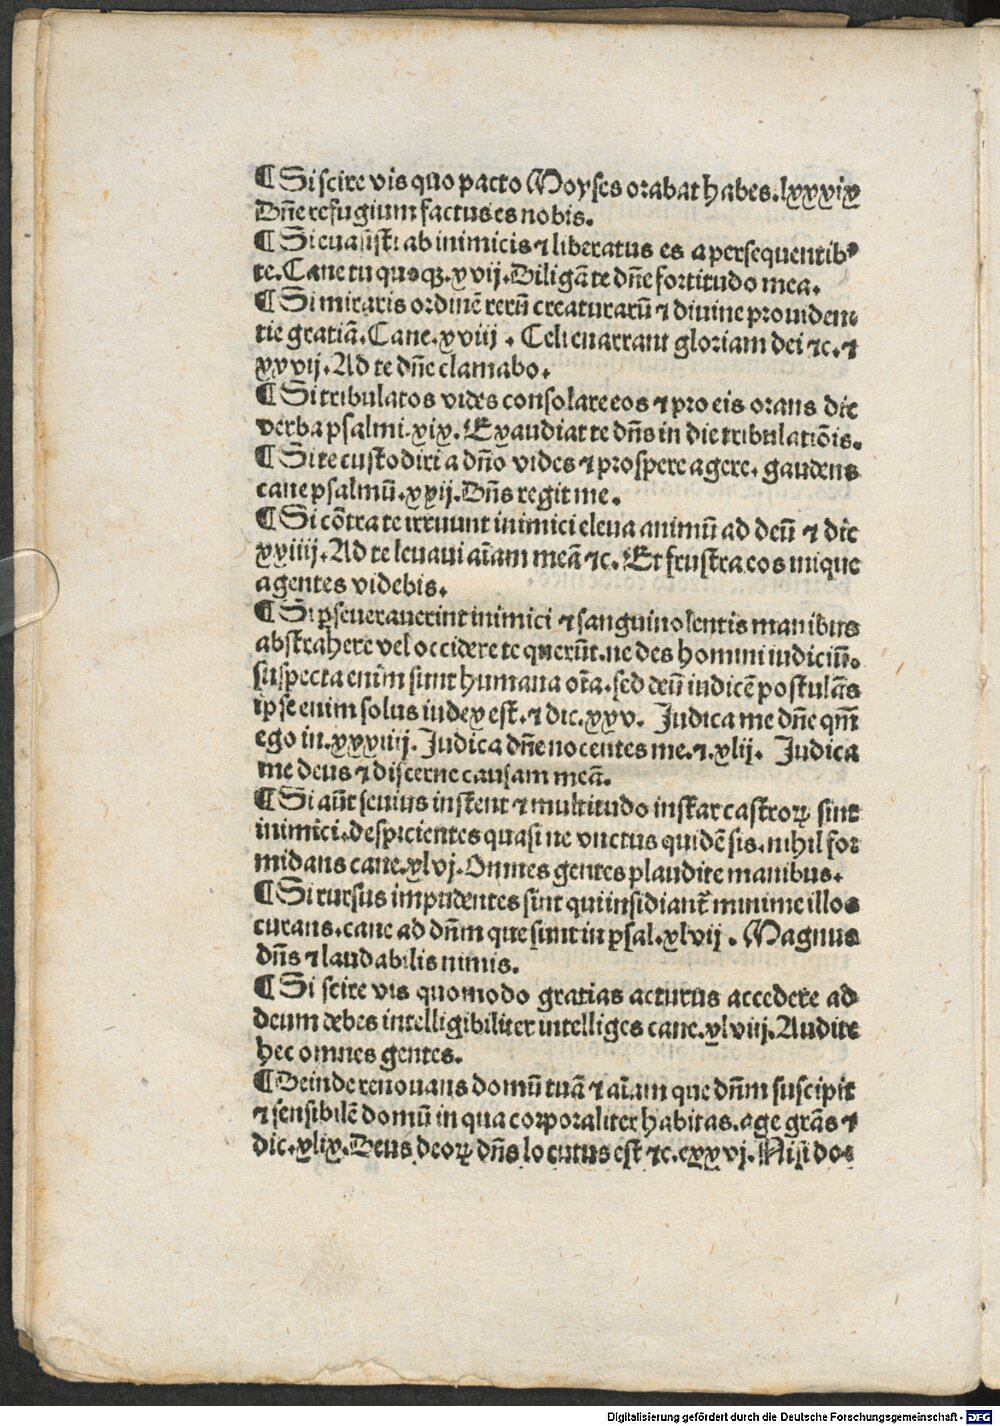 ¶ Si scire vis quo pacto Moyses orabat habes. lxxxix
Dñe refugium factus es nobis.
¶ Si euasisti ab inimicis ⁊ liberatus es a persequentibꝰ
te. Cane tu quoqꝫ. xvij. Diligā te dñe fortitudo mea.
¶ Si miraris ordinē rerū creaturarū ⁊ diuine prouiden⸗
tie gratiā. Cane. xviij. Celi enarrant gloriam dei ⁊c. ⁊
xxvij. Ad te dñe clamabo.
¶ Si tribulatos vides consolare eos ⁊ pro eis orans dic
verba psalmi. xix. Exaudiat te dñs in die tribulatiōis.
¶ Si te custodiri a dño vides ⁊ prospere agere. gaudens
cane psalmū. xxij. Dñs regit me.
¶ Si cōtra te irruunt inimici eleua animū ad deū ⁊ dic
xxiiij. Ad te leuaui aīam meā ⁊c. Et frustra eos inique
agentes videbis.
¶ Si ꝑseuerauerint inimici ⁊ sanguinolentis manibus
abstrahere vel occidere te querūt. ne des homini iudiciū.
suspecta enim sunt humana oīa. sed deū iudicē postulās
ipse enim solus iudex est. ⁊ dic. xxv. Judica me dñe qm̄
ego in. xxxiiij. Judica dñe nocentes me. ⁊. xlij. Judica
me deus ⁊ discerne causam meā.
¶ Si aūt seuius instent ⁊ multitudo instar castroꝝ sint
inimici. despicientes quasi ne vnctus quidē sis. nihil for
midans cane. xlvj. Omnes gentes plaudite manibus.
¶ Si rursus impudentes sint qui insidiant᷑ minime illos
curans. cane ad dñm que sunt in psal. xlvij. Magnus
dñs ⁊ laudabilis nimis.
¶ Si scire vis quomodo gratias acturus accedere ad
deum debes intelligibiliter intelliges cane. xlviij. Audite
hec omnes gentes.
¶ Deinde renouans domū tuā ⁊ aīam que dñm suscipit
⁊ sensibilē domū in qua corporaliter habitas. age grās ⁊
dic. xlix. Deus deoꝝ dñs locutus est ⁊c. cxxvj. Nisi do⸗
Digitalisierung gefördert durch die Deutsche Forschungsgemeinschaft - DFG